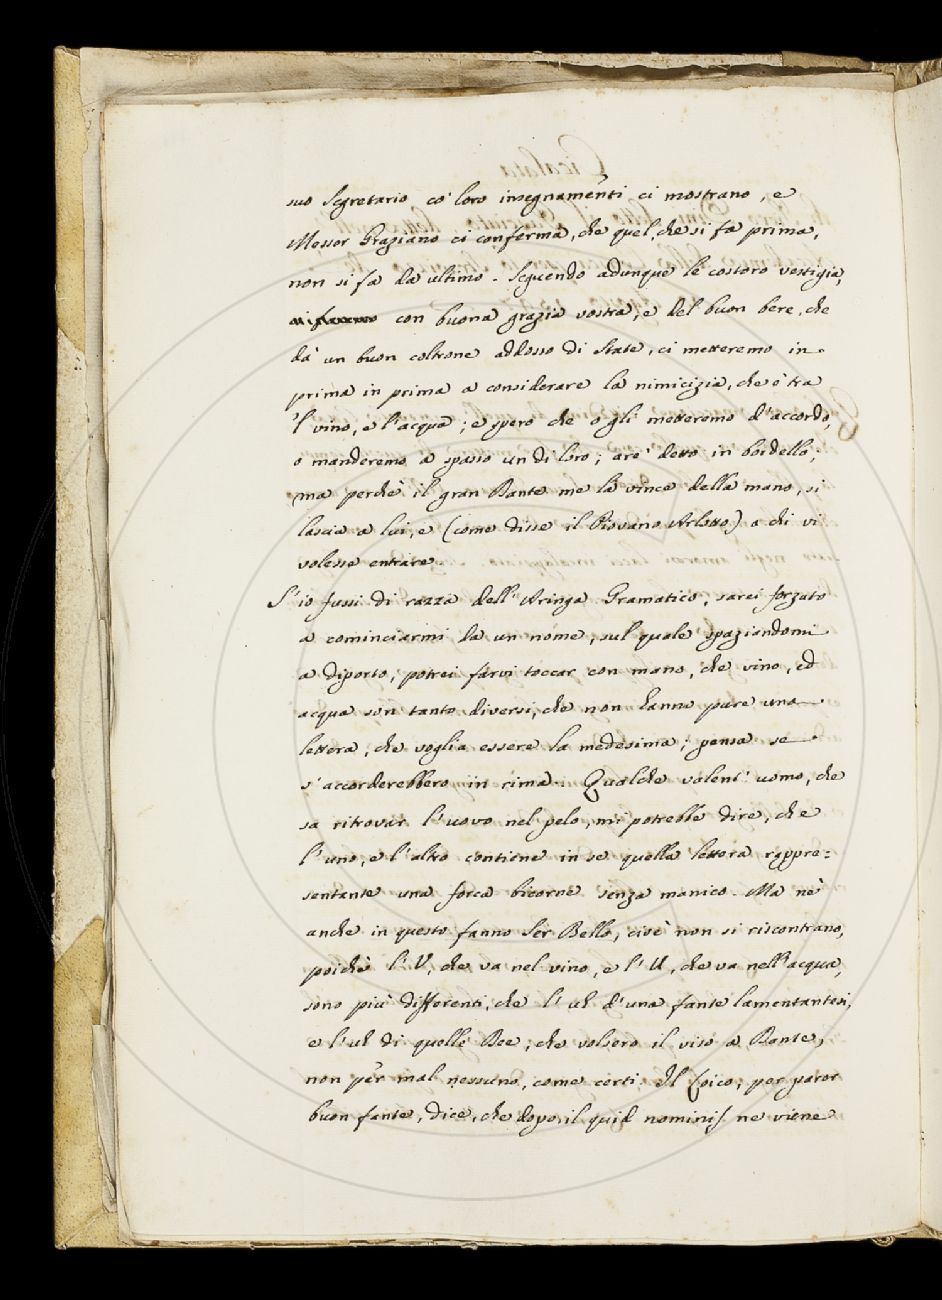 suo Segretario co' loro insegnamenti ci mostrano, e
Messer Graziano ci conferma, che quel, che si fa prima,
non si fa da ultimo. Seguendo adunque le costoro vestigia,
con buona grazia vostra, e del buon bere, che
dà un buon coltrone addosso di state, ci metteremo in
prima in prima a considerare la nimicizia, che è tra
'l vino, e l'acqua; e spero che o gli metteremo d'accordo,
o manderemo a spasso un di loro; are' detto in bordello;
ma perchè il gran Dante me la vince della mano, si
lascia a lui, e (come disse il Piovano Arlotto) a chi vi
volesse entrare.
S'io fussi di razza dell'Aringa Gramatico, sarei forzato
a cominciarmi da un nome, sul quale spaziandomi
a diporto, potrei farvi toccar con mano, che vino, ed
acqua son tanto diversi, che non hanno pure una
lettera, che voglia essere la medesima; pensa se
s'accorderebbero in rima. Qualche valent'uomo, che
sa ritrovar l'uovo nel pelo, mi potrebbe dire, che
l'uno, e l'altro contiene in se quella lettera rappre=
sentante una forca bicorne senza manico. Ma nè
anche in questo fanno Ser Bello, cioè non si riscontrano,
poichè l'V, che va nel vino, e l'U, che va nell'acqua,
sono più differenti, che l'uh d'una fante lamentantesi,
e l'uh di quelle Dee, che volsero il viso a Dante,
non per mal nessuno, come certi. Il Coico, per parer
buon fante, dice, che dopo il quid nominis ne viene